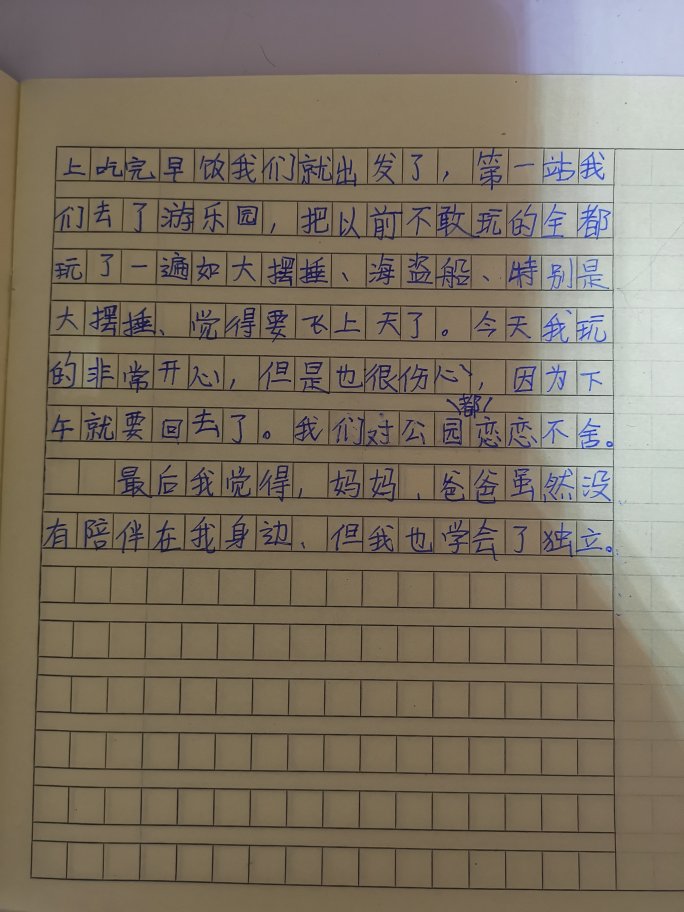 上吃完早饭我们就出发了，第一站我
们去了游乐园，把以前不敢玩的全都
玩了一遍如大摆捶、海盗船、特别是
大摆捶、觉得要飞上天了。今天我玩
的非常开心，但是也很伤心，因为下
午就要回去了。我们对公园都恋恋不舍。
最后我觉得，妈妈、爸爸虽然没
有陪伴在我身边、但我也学会了独立。